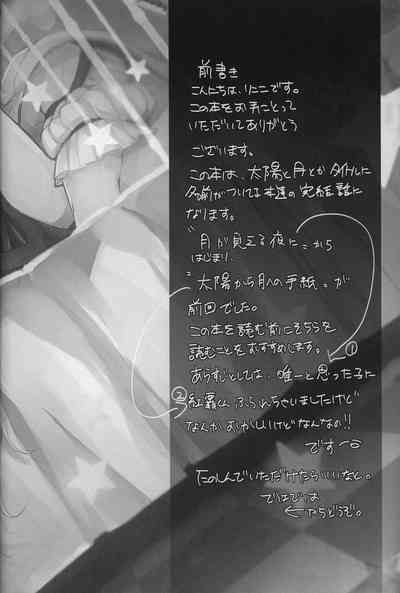 前書き
こんにちは、りここです。
この本をお手にとって
いただいてありがとう
ございます。
この本は、太陽と月とかタイトルに
名前がついてる本達の完結話に
なります。
"月が見える夜に"から
はじまり、
"太陽から月への手紙"が
前回でした。
この本を読む前にそちらを
読むことをおすすめします。
①
あらすじとしては、唯一と思った子に
②
紅覇くんふられちゃいましたけど
なんかおかしいけどなんなの!!
です
たのしんでいただけたらいいなと。
ではでは
←からどうぞ。